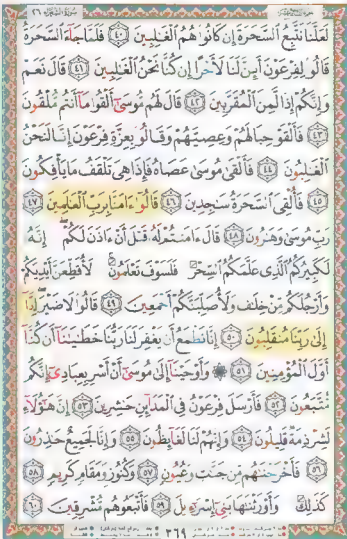 لَعَلَّنَا نَتَّبِعُ ٱلسَّحَرَةَ إِن كَانُوا۟ هُمُ ٱلْغَـٰلِبِينَ ٤٠ فَلَمَّا جَآءَ ٱلسَّحَرَةُ
قَالُوا۟ لِفِرْعَوْنَ أَئِنَّ لَنَا لَأَجْرًا إِن كُنَّا نَحْنُ ٱلْغَـٰلِبِينَ ٤١ قَالَ نَعَمْ
وَإِنَّكُمْ إِذًا لَّمِنَ ٱلْمُقَرَّبِينَ ٤٢ قَالَ لَهُم مُّوسَىٰٓ أَلْقُوا۟ مَآ أَنتُم مُّلْقُونَ
٤٣ فَأَلْقَوْا۟ حِبَالَهُمْ وَعِصِيَّهُمْ وَقَالُوا۟ بِعِزَّةِ فِرْعَوْنَ إِنَّا لَنَحْنُ
ٱلْغَـٰلِبُونَ ٤٤ فَأَلْقَىٰ مُوسَىٰ عَصَاهُ فَإِذَا هِىَ تَلْقَفُ مَا يَأْفِكُونَ
٤٥ فَأُلْقِىَ ٱلسَّحَرَةُ سَـٰجِدِينَ ٤٦ قَالُوٓا۟ ءَامَنَّا بِرَبِّ ٱلْعَـٰلَمِينَ ٤٧
رَبِّ مُوسَىٰ وَهَـٰرُونَ ٤٨ قَالَ ءَامَنتُمْ لَهُۥ قَبْلَ أَنْ ءَاذَنَ لَكُمْ إِنَّهُۥ
لَكَبِيرُكُمُ ٱلَّذِى عَلَّمَكُمُ ٱلسِّحْرَ فَلَسَوْفَ تَعْلَمُونَ لَأُقَطِّعَنَّ أَيْدِيَكُمْ
وَأَرْجُلَكُم مِّنْ خِلَـٰفٍ وَلَأُصَلِّبَنَّكُمْ أَجْمَعِينَ ٤٩ قَالُوا۟ لَا ضَيْرَ إِنَّآ
إِلَىٰ رَبِّنَا مُنقَلِبُونَ ٥٠ إِنَّا نَطْمَعُ أَن يَغْفِرَ لَنَا رَبُّنَا خَطَـٰيَـٰنَآ أَن كُنَّآ
أَوَّلَ ٱلْمُؤْمِنِينَ ٥١ ۞ وَأَوْحَيْنَآ إِلَىٰ مُوسَىٰٓ أَنْ أَسْرِ بِعِبَادِىٓ إِنَّكُم
مُّتَّبَعُونَ ٥٢ فَأَرْسَلَ فِرْعَوْنُ فِى ٱلْمَدَآئِنِ حَـٰشِرِينَ ٥٣ إِنَّ هَـٰٓؤُلَآءِ
لَشِرْذِمَةٌ قَلِيلُونَ ٥٤ وَإِنَّهُمْ لَنَا لَغَآئِظُونَ ٥٥ وَإِنَّا لَجَمِيعٌ حَـٰذِرُونَ
٥٦ فَأَخْرَجْنَـٰهُم مِّن جَنَّـٰتٍ وَعُيُونٍ ٥٧ وَكُنُوزٍ وَمَقَامٍ كَرِيمٍ ٥٨
كَذَٰلِكَ وَأَوْرَثْنَـٰهَا بَنِىٓ إِسْرَٰٓءِيلَ ٥٩ فَأَتْبَعُوهُم مُّشْرِقِينَ ٦٠
٣٦٩